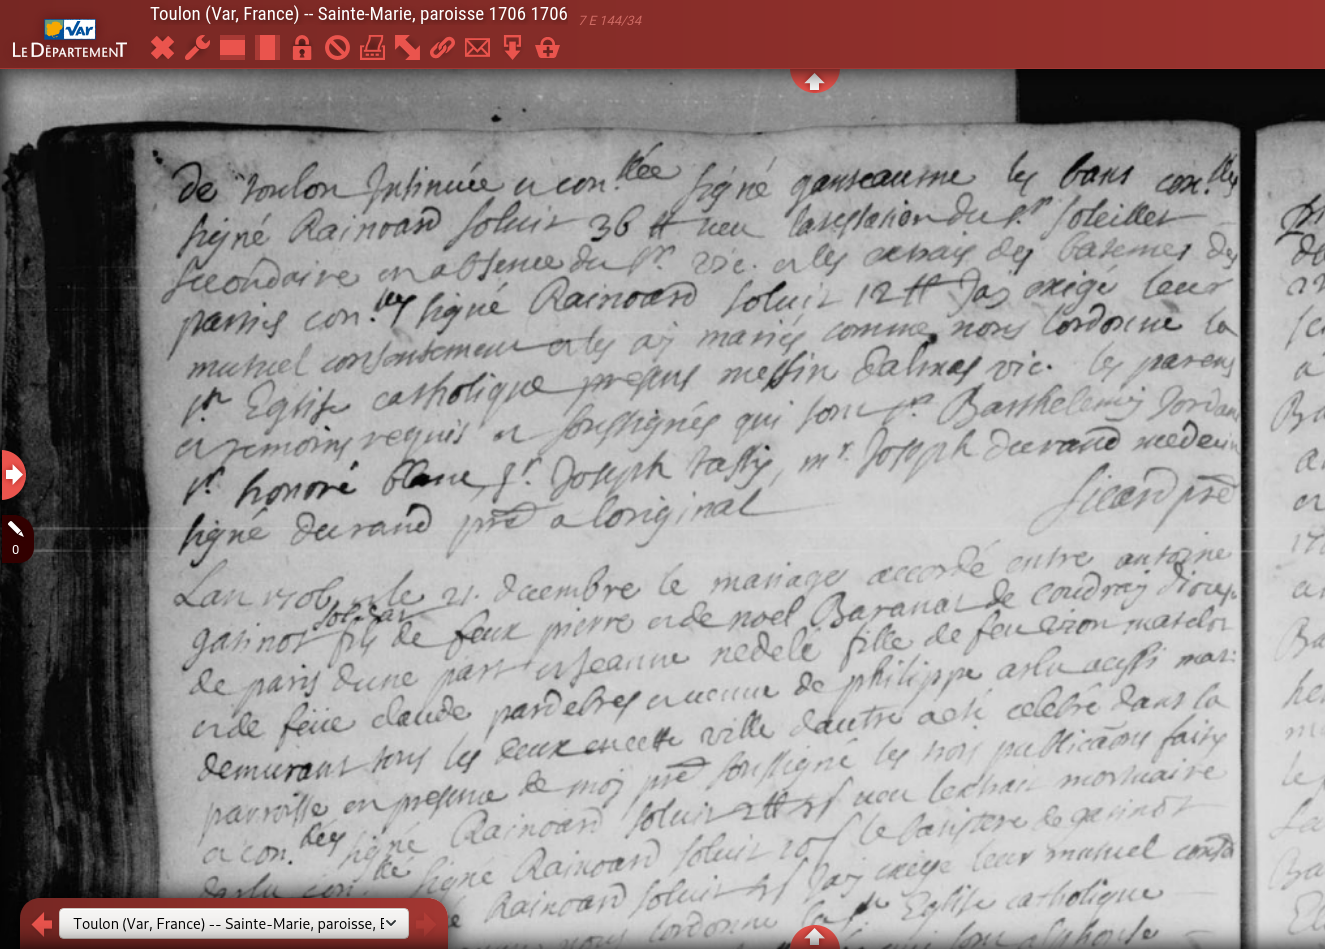 Toulon (Var, France) -- Sainte-Marie, paroisse 1706 1706
7 E 144/34
Var
LE DÉPARTEMENT
de Toulon Insinuée et con.llée signé ganteaume les bans con.lles
signé Rainoard soluit 36 ₶ veu lattestation du s.r soleillet
secondaire en absence du s.r vic. et les extrais des batemes des
parties con.lles signé Rainoard soluit 12 ₶ Jay exigé leur
mutuel consentement et les ay mariés comme nous l'ordonne la
s.te Eglise catholique presens messire dalmas vic. les parens
et temoins requis et soussignés qui sont s.r Barthelemy Jordan
s.r honoré blanc, s.r Joseph tassy, m.r Joseph durand medecin
signé durand pre a loriginal
sicard pre
Lan 1706 et le 21 decembre le mariage accordé entre antoine
soldat
gatinot fils de feux pierre et de noel Baranat de coudray
de paris dune part et Jeanne nedelé fille de feu matelot
et de feüe claude et veuve de philippe arlu aussi mat:
demurant tous les deux en cette ville dautre a esté celebré dans la
parroisse en presence de moy pre soussigné les trois publicaons faites
et con.lées signé Rainoard soluit veu lextrait mortuaire
darlu con.llé signé Rainoard soluit 10 s le batistere de gatinot
Rainoard soluit Jay exigé leur mutuel
nous lordonne la s.te Eglise catholique
0
Toulon (Var, France) -- Sainte-Marie, paroisse, E